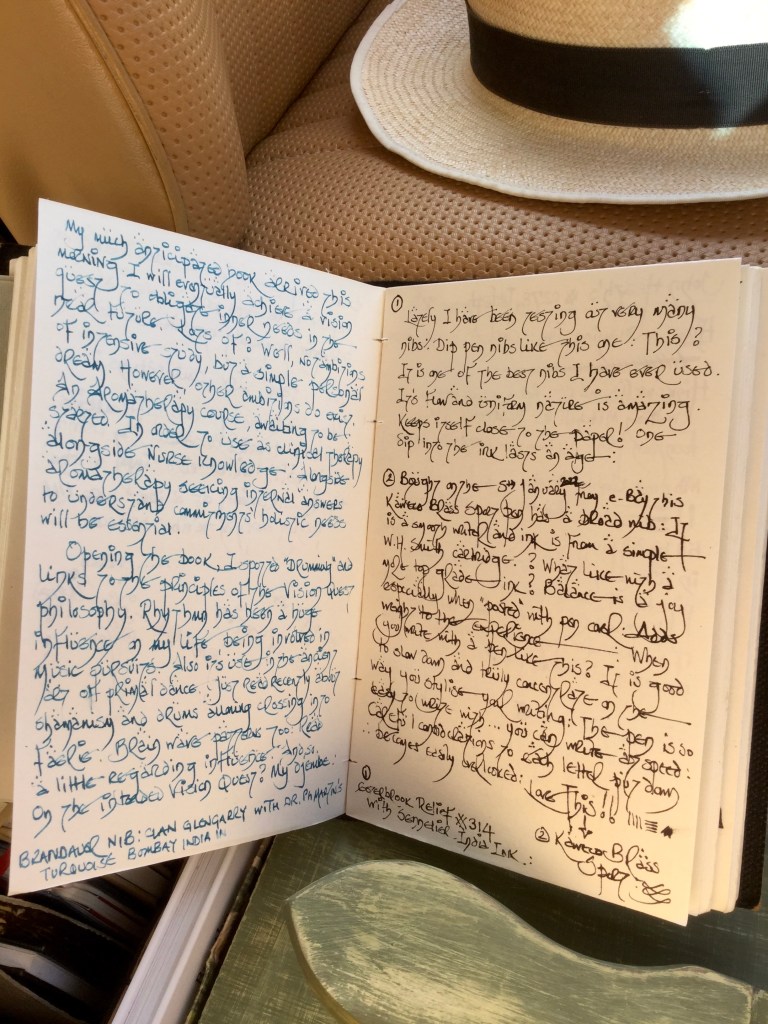 My much anticipated book arrived this
morning. I will eventually achieve a vision
quest to obligate inner needs in the
near future. Lots of? Well, not ambitins
of intensive study, but a simple personal
dream. However other ambitins do exist.
An aromatherapy course, awaiting to be
started. In order to use as clinical therapy
alongside Nurse knowledge. Alongside
aromatherapy seeking internal answers
to understand commitments holistic needs
will be essential.
Opening the book, I spotted "Drumming" and
links to the principles of the Vision Quest
philosophy. Rhythm has been a huge
influence on my life being involved in
music pursuits, also its use in the ancient
art of primal dance. Just read recently about
shamanism and drums allowing crossing into
faerie. Brain wave patterns too. Read
a little regarding influence and
On the intended Vision Quest? My djembe.
BRANDAUER NIB: CLAN GLENGARRY WITH DR. PH MARTIN'S
TURQUOISE BOMBAY INDIA IN
① Lately I have been testing out very many
nibs. Dip pen nibs like this one. This?
It is one of the best nibs I have ever used.
It's fun and uniform nature is amazing.
Keeps itself close to the paper! One
dip into the ink lasts an age.
② Bought on the 5th January from e-Bay this
Kaweco Brass Sport pen has a broad nib: It
is a smooth writer and ink is from a simple
W.H. Smith cartridge.? What like with a
more top grade ink? Balance is a joy
especially when "posted" with pen cap. Adds
weight to the experience When
you write with a pen like this? It is good
to slow down and truly concentrate on the
way you stylise your writing. The pen is so
easy to write with... you can write at speed.
Careful considerations to each letter put down
becomes easily overlooked: Love This!!
① Esterbrook Relief 314
with Sennelier India Ink
② Kaweco Brass
Sport